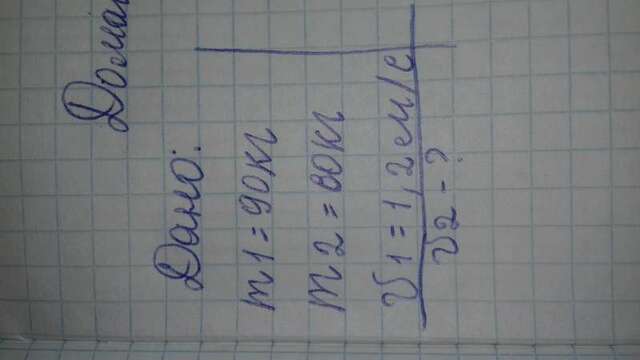 Дома
Дано:
m1 = 90кг
m2 = 60кг
V1 = 1,2 см/с
V2 - ?